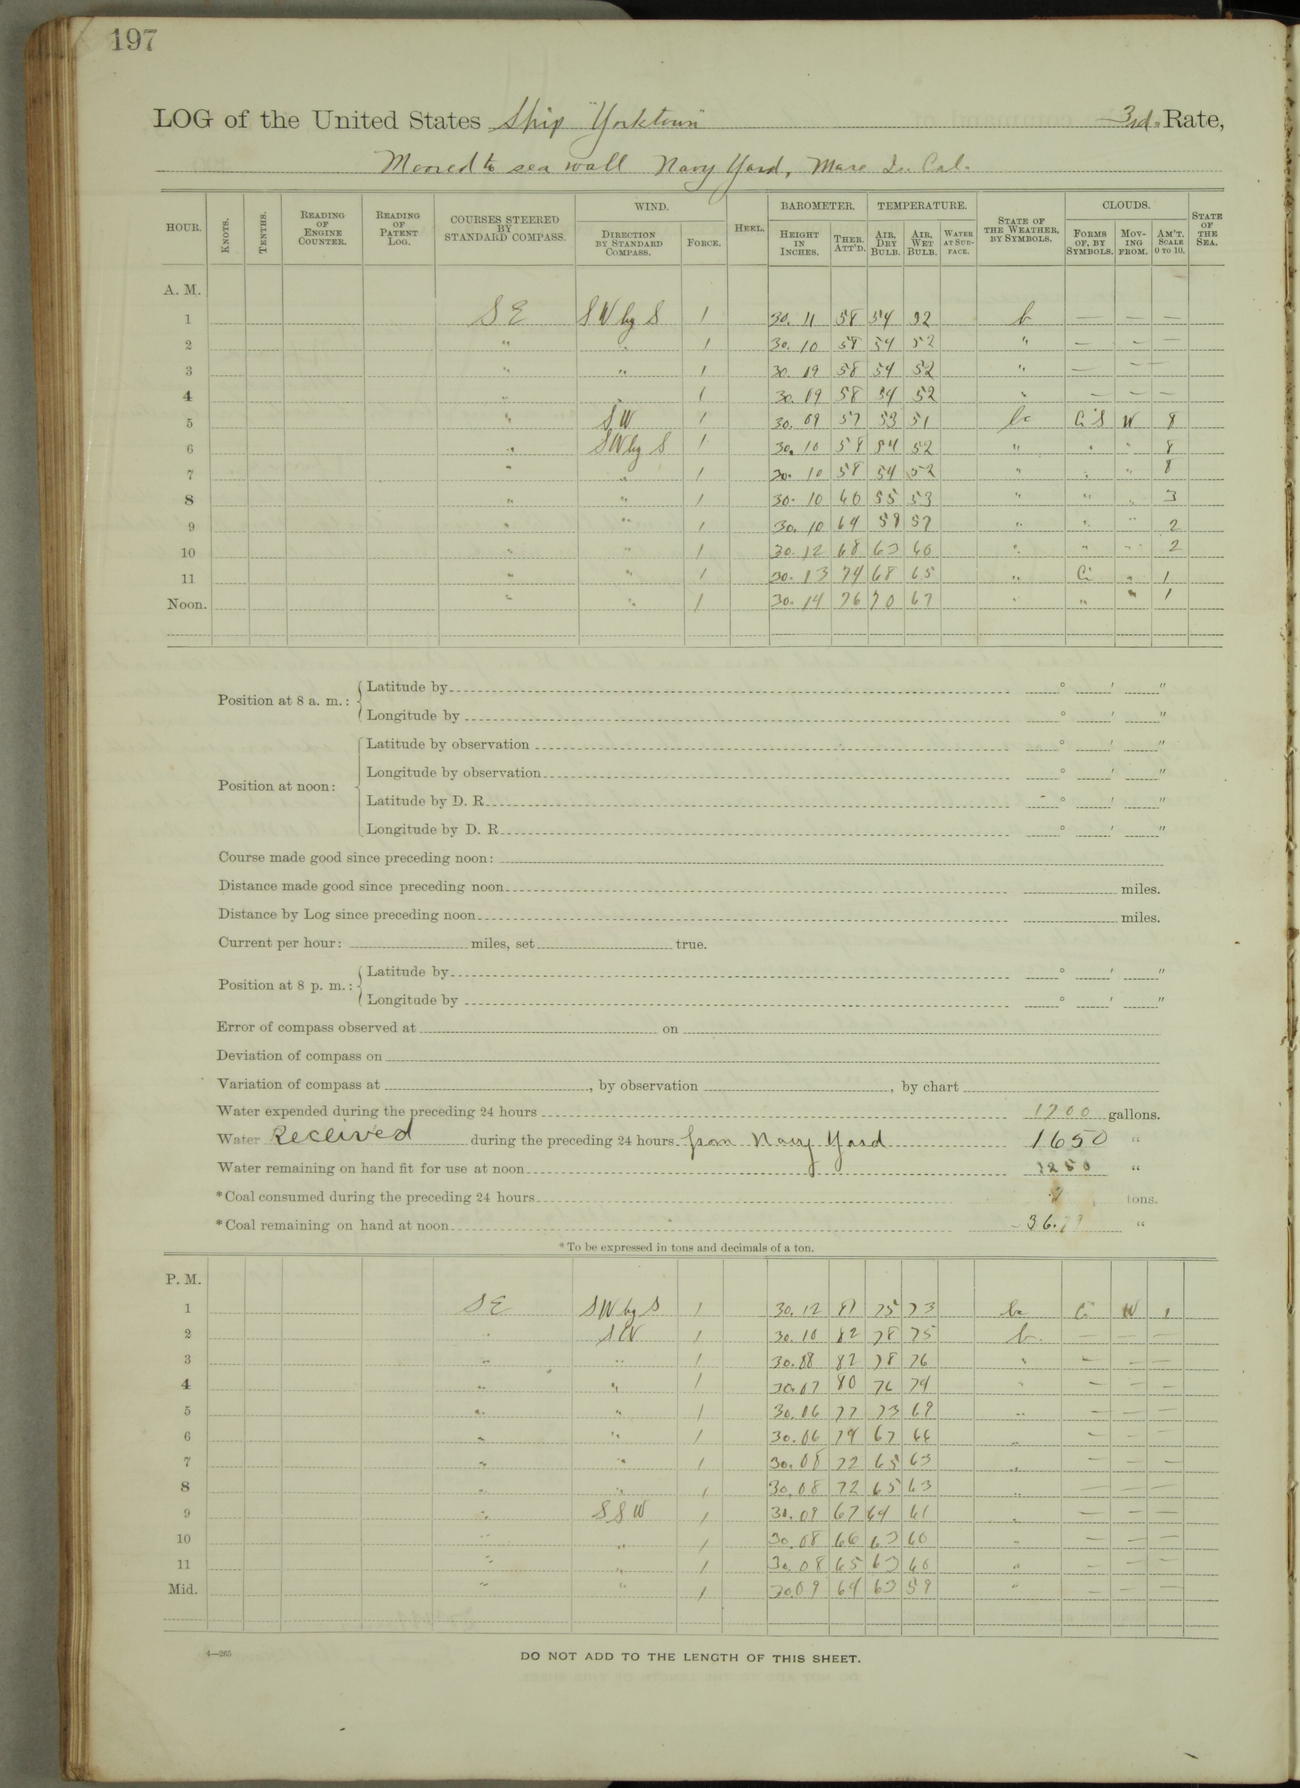 197
LOG of the United States Ship "Yorktown" 3rd. Rate,
Moored to sea wall Navy Yard, Mare Is. Cal.
HOUR. KNOTS. TENTHS. READING OF ENGINE COUNTER. READING OF PATENT LOG. COURSES STEERED BY STANDARD COMPASS. WIND. DIRECTION BY STANDARD COMPASS. FORCE. HEEL. BAROMETER. HEIGHT IN INCHES. THER. ATT'D. TEMPERATURE. AIR, DRY BULB. AIR, WET BULB. WATER AT SUR-FACE. STATE OF THE WEATHER, BY SYMBOLS. CLOUDS. FORMS OF, BY SYMBOLS. MOV-ING FROM. AM'T. SCALE 0 TO 10. STATE OF THE SEA.
A. M.
1 S E S W by S 1 30. 11 58 54 52 b — — —
2 " " 1 30. 10 58 54 52 " — — —
3 " " 1 30. 09 58 54 52 " — — —
4 " " 1 30. 09 58 54 52 " — — —
5 " S W 1 30. 09 57 53 51 bc Ci S W 8
6 " S W by S 1 30. 10 58 54 52 " " " 8
7 " " 1 30. 10 58 54 52 " " " 8
8 " " 1 30. 10 60 55 53 " " " 3
9 " " 1 30. 10 64 59 57 " " " 2
10 " " 1 30. 12 68 63 60 " " " 2
11 " " 1 30. 13 74 68 65 " Ci " 1
Noon. " " 1 30. 14 76 70 67 " " " 1
Position at 8 a. m.: Latitude by ° ' "
Longitude by ° ' "
Position at noon: Latitude by observation ° ' "
Longitude by observation ° ' "
Latitude by D. R. ° ' "
Longitude by D. R. ° ' "
Course made good since preceding noon:
Distance made good since preceding noon miles.
Distance by Log since preceding noon miles.
Current per hour: miles, set true.
Position at 8 p. m.: Latitude by ° ' "
Longitude by ° ' "
Error of compass observed at on
Deviation of compass on
Variation of compass at , by observation , by chart
Water expended during the preceding 24 hours 1700 gallons.
Water Received during the preceding 24 hours from Navy Yard 1650 "
Water remaining on hand fit for use at noon "
*Coal consumed during the preceding 24 hours tons.
*Coal remaining on hand at noon "
*To be expressed in tons and decimals of a ton.
P. M.
1 S E S W by S 1 30. 12 81 75 73 bc Ci W 1
2 " S W 1 30. 10 82 78 75 b — — —
3 " " 1 30. 08 82 78 76 " — — —
4 " " 1 30. 07 80 76 74 " — — —
5 " " 1 30. 06 77 73 69 " — — —
6 " " 1 30. 06 74 67 66 " — — —
7 " " 1 30. 08 72 65 63 " — — —
8 " " 1 30. 08 72 65 63 " — — —
9 " S S W 1 30. 09 67 64 61 " — — —
10 " " 1 30. 08 66 63 60 " — — —
11 " " 1 30. 08 65 63 60 " — — —
Mid. " " 1 30. 09 64 63 59 " — — —
4—265
DO NOT ADD TO THE LENGTH OF THIS SHEET.